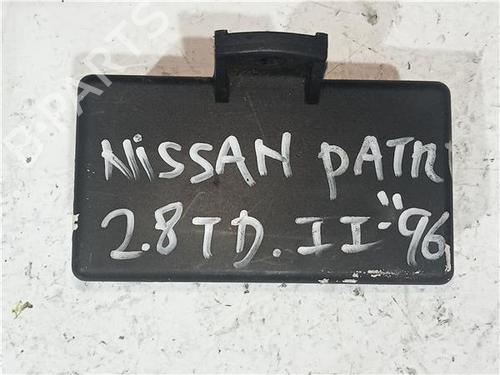 B-PARTS
NiSSAN PATR
2.8 TD. II-"96